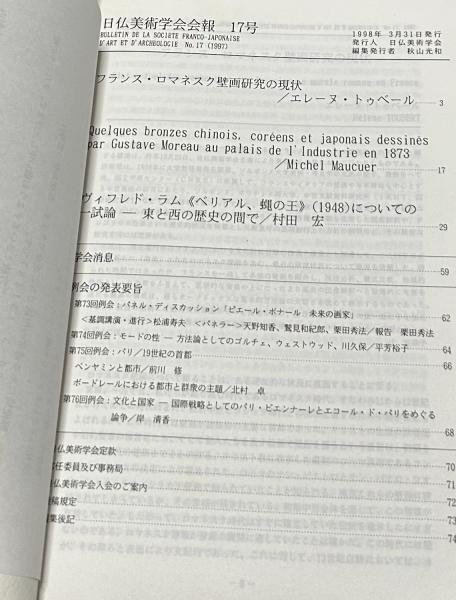 日仏美術学会会報 17号
BULLETIN DE LA SOCIETE FRANCO-JAPONAISE
D'ART ET D'ARCHEOLOGIE No.17 (1997)
1998年 3月31日発行
発行人 日仏美術学会
編集発行者 秋山光和
フランス・ロマネスク壁画研究の現状
/エレーヌ・トゥベール 3
Quelques bronzes chinois, coréens et japonais dessinés
par Gustave Moreau au palais de l'Industrie en 1873
/Michel Maucuer 17
ヴィフレド・ラム《ベリアル、蠅の王》(1948)についての
一試論 ― 東と西の歴史の間で/村田 宏 29
学会消息 59
例会の発表要旨
第73回例会：パネル・ディスカッション「ピエール・ボナール 未来の画家」 62
<基調講演・進行>松浦寿夫 <パネラー>天野知香、鷲見和紀郎、栗田秀法/報告 栗田秀法
第74回例会：モードの性 ― 方法論としてのゴルチェ、ウェストウッド、川久保/平芳裕子 64
第75回例会：パリ/19世紀の首都 66
ベンヤミンと都市/前川 修
ボードレールにおける都市と群衆の主題/北村 卓
第76回例会：文化と国家 ― 国際戦略としてのパリ・ビエンナーレとエコール・ド・パリをめぐる
論争/岸 清香 68
日仏美術学会定款 70
常任委員及び事務局 71
日仏美術学会入会のご案内 72
投稿規定 73
編集後記 74